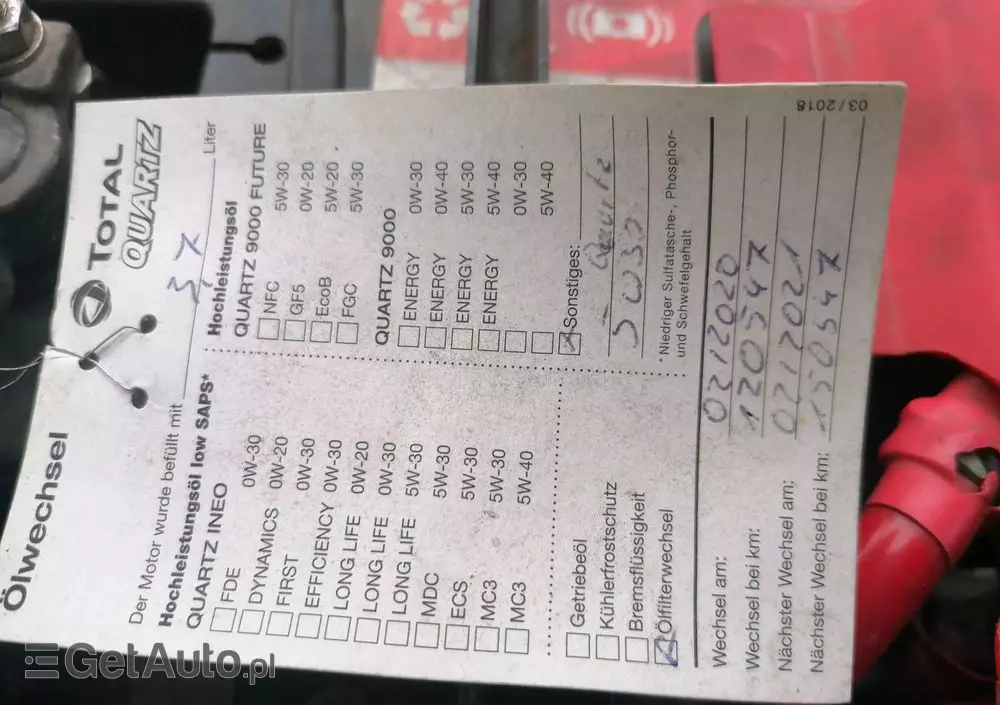 Ölwechsel
TOTAL
QUARTZ
Der Motor wurde befüllt mit 3,7 Liter
Hochleistungsöl low SAPS*
QUARTZ INEO
FDE 0W-30
DYNAMICS 0W-20
FIRST 0W-30
EFFICIENCY 0W-30
LONG LIFE 0W-20
LONG LIFE 0W-30
LONG LIFE 5W-30
MDC 5W-30
ECS 5W-30
MC3 5W-30
MC3 5W-40
Hochleistungsöl
QUARTZ 9000 FUTURE
NFC 5W-30
GF5 0W-20
EcoB 5W-20
FGC 5W-30
QUARTZ 9000
ENERGY 0W-30
ENERGY 0W-40
ENERGY 5W-30
ENERGY 5W-40
0W-30
5W-40
Sonstiges:
5W30
Getriebeöl
Kühlerfrostschutz
Bremsflüssigkeit
Ölfilterwechsel
*Niedriger Sulfatasche-, Phosphor-
und Schwefelgehalt
Wechsel am: 02/2020
Wechsel bei km: 120547
Nächster Wechsel am: 02/2021
Nächster Wechsel bei km: 150547
03/2018
GetAuto.pl